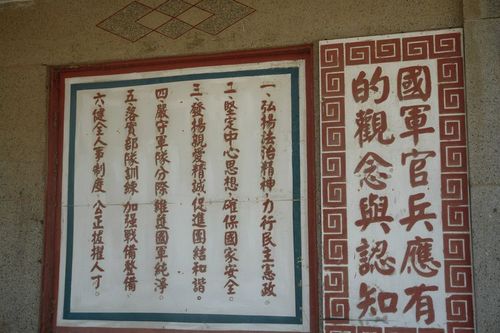 國軍官兵應有
的觀念與認知
一、弘揚法治精神，力行民主憲政。
二、堅定中心思想，確保國家安全。
三、發揚親愛精誠，促進團結和諧。
四、嚴守軍隊分際，維護國軍純淨。
五、落實部隊訓練，加強戰備整備。
六、健全人事制度，公正拔擢人才。